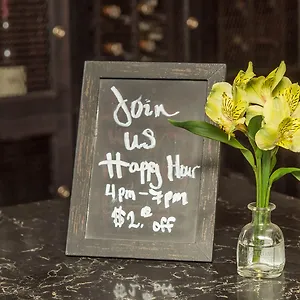 Join
us
Happy Hour
4pm-7pm
$2. off